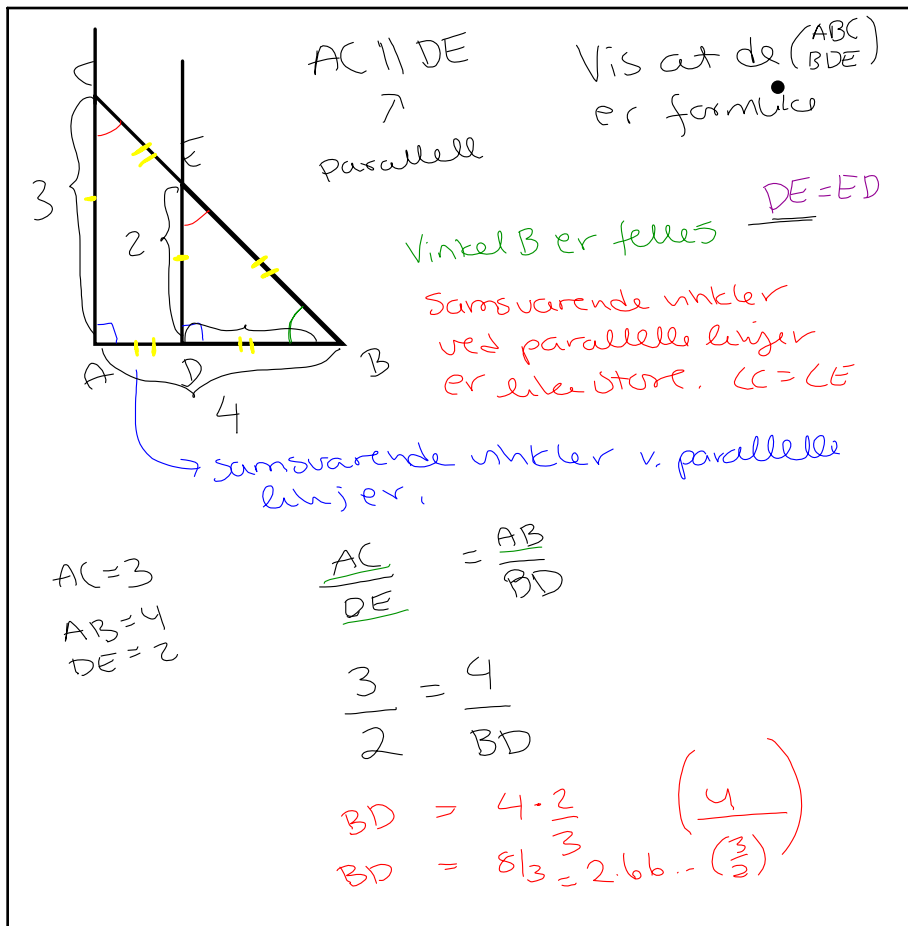 AC || DE
↗
parallell
Vis at de (ABC
BDE)
er formlike
C
E
3
2
A
D
B
4
DE = ED
Vinkel B er felles
Samsvarende vinkler
ved parallelle linjer
er like store. ∠C = ∠E
→ samsvarende vinkler v. parallelle
linjer.
AC = 3
AB = 4
DE = 2
AC/DE = AB/BD
3/2 = 4/BD
BD = 4 · 2/3
BD = 8/3 = 2.66..
(4/(3/2))